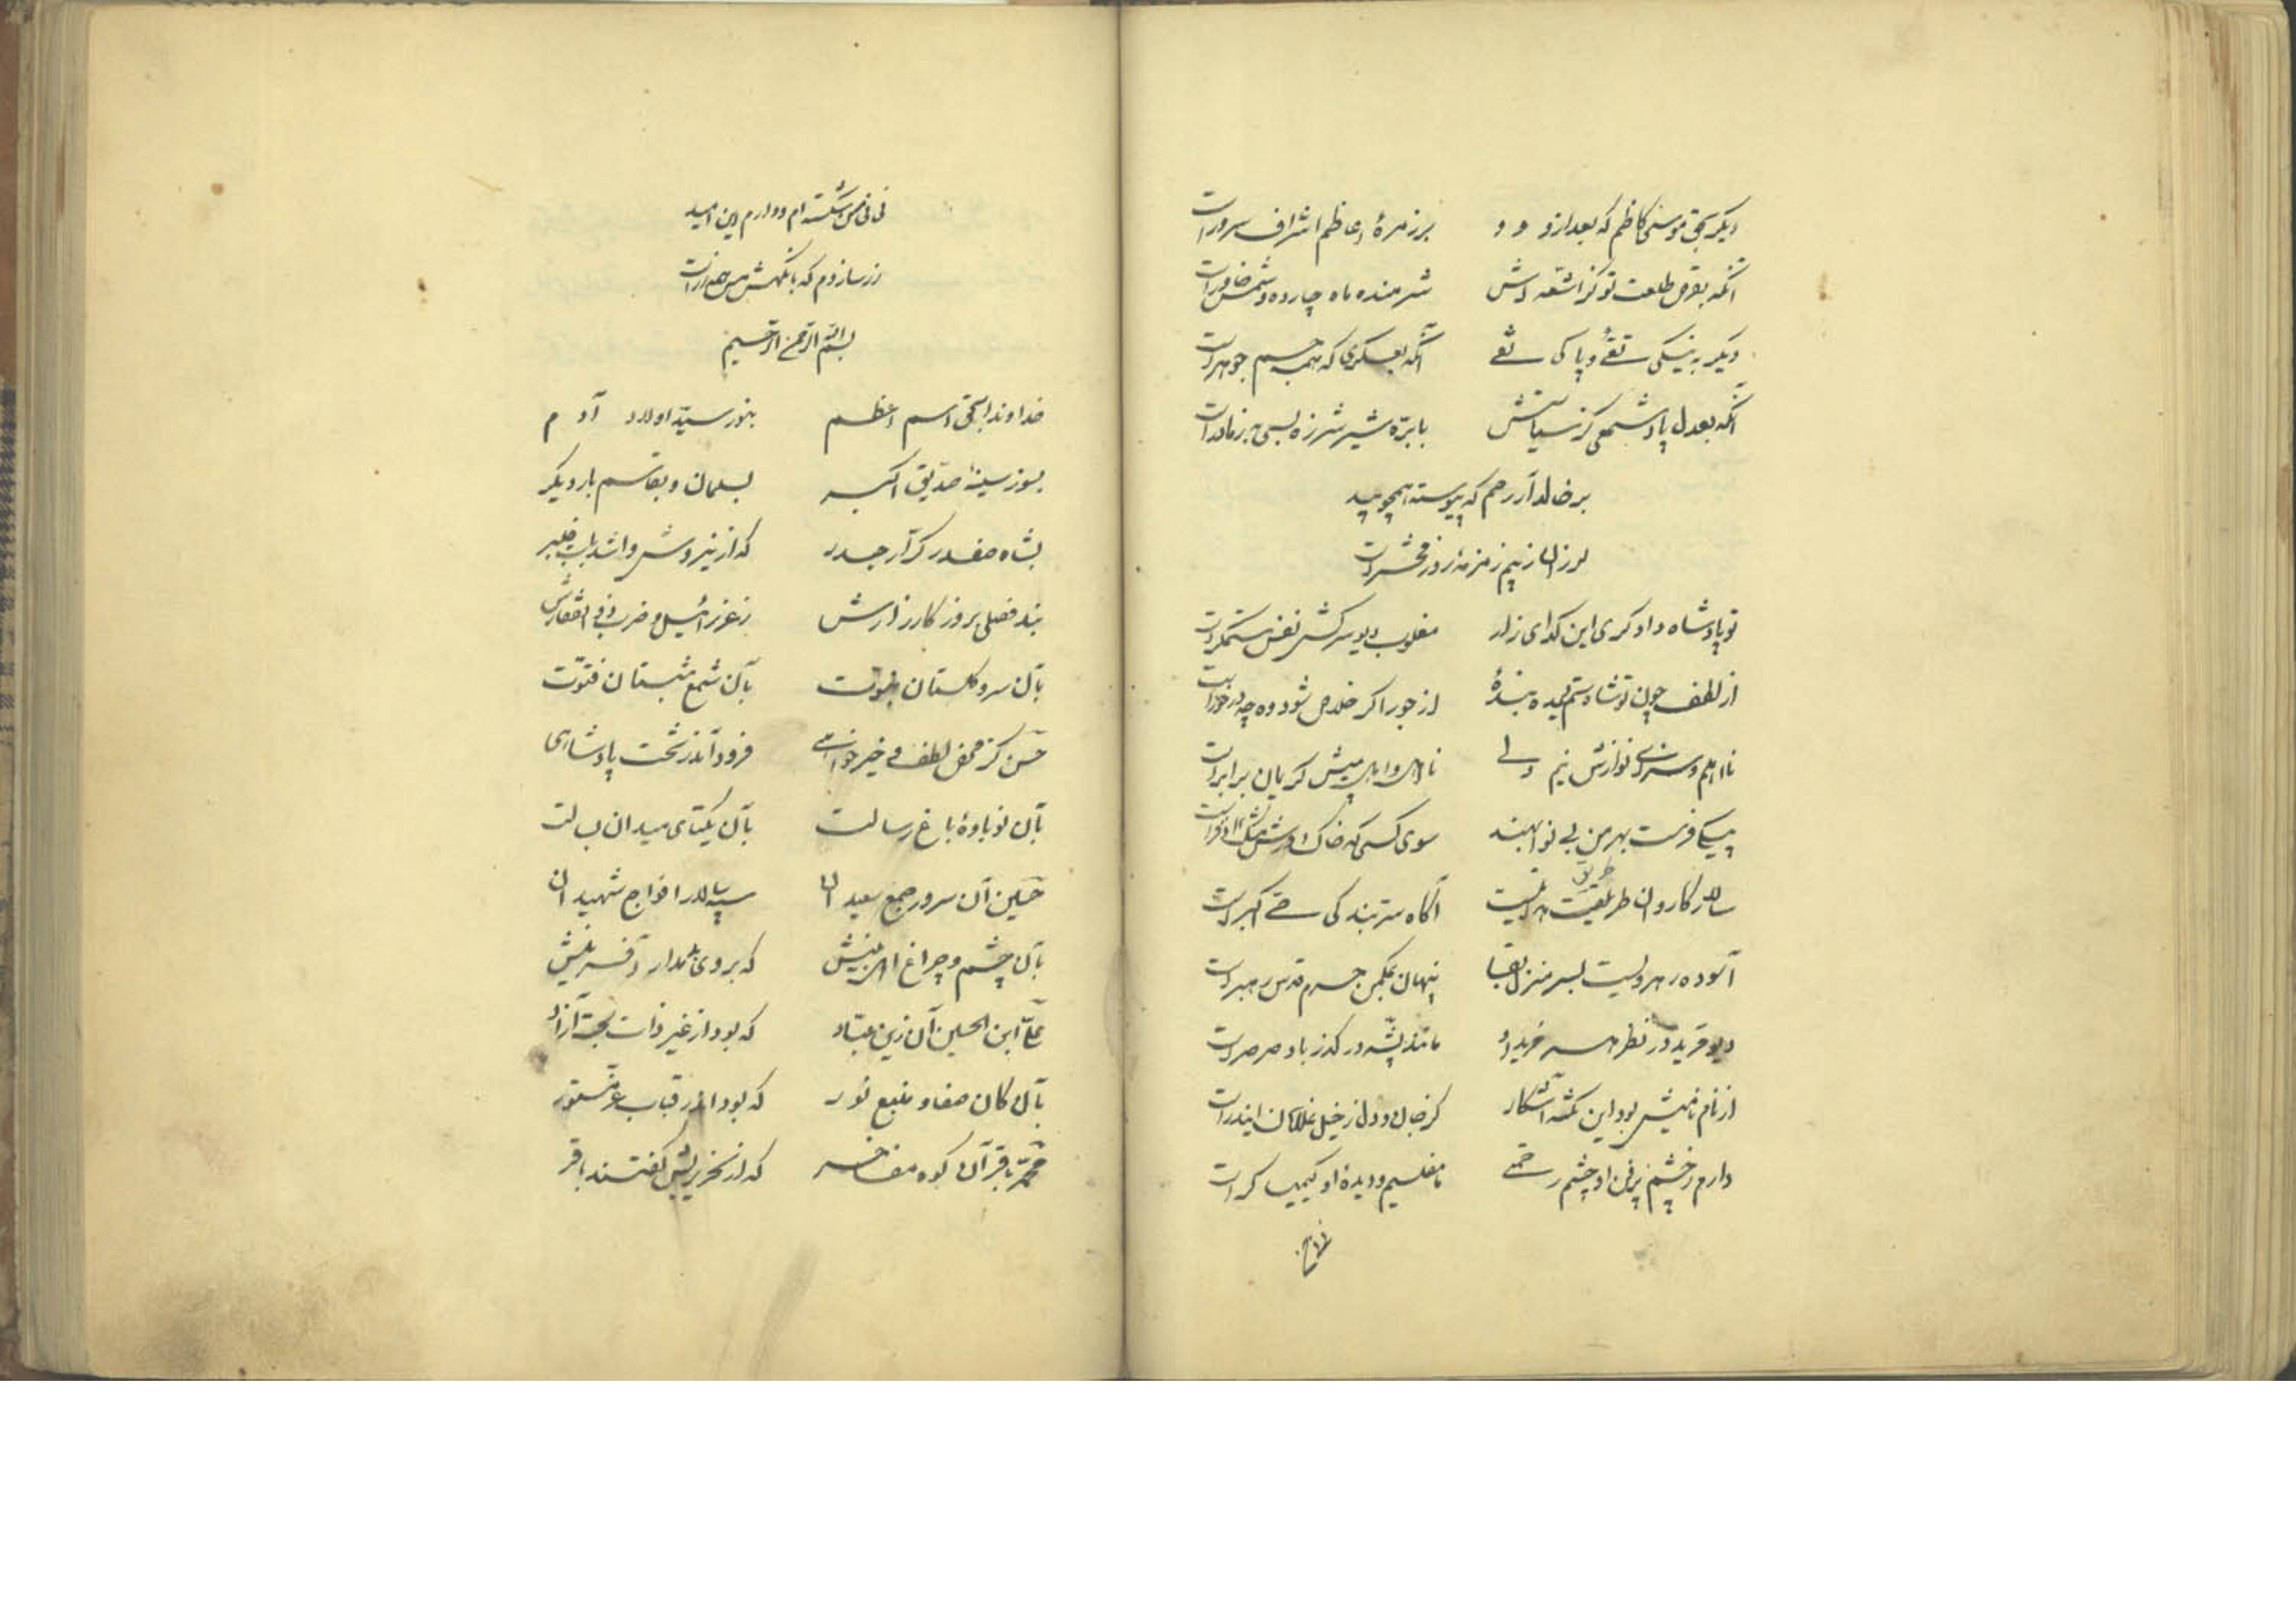 دیگر بحق موسی کاظم که بعد ازو برزمرهٔ اعاظم اشراف سرورست
آنگه بقرص طلعت تو کز اشعه‌اش شرمنده ماه چارده و شمس خاورست
دیگر به نیکی تقی و پاکی نقی آنگه بعسکری که همه جسم جوهرست
آنگه بعدل پادشهی کز سیاستش با بره شیر شرزه بسی
بر خالد آر رحم که پیوسته همچو بید
لرزان ز بیم زمزمهٔ روز محشرست
تو پادشاه دادگری این گدای زار مغلوب دیو سرکش نفس ستمگرست
از لطف چون تو شاه ستمدیده بندهٔ از جور اگر خلاص شود وه چه درخورست
نااهلم و سزای نوازش نیم ولی نااهل و اهل پیش کریمان برابرست
پیکی فرست بهر من بی نوا بهند سوی کسی که خاک درش مشک اذفرست
سالار کاروان طریقت آگاه سر بندگی حی اکبرست
طریق
آسوده رهرویست بسر منزل بقا پنهان بکمن حرم قدس رهبرست
دیو مرید در نظر مانند پشه در گذر باد صرصرست
از نام نامیش بود این نکته آشکار کز جان و دل ز خیل غلامان
دارم ز چشم پر فن او چشم رحمتی نا مفلسیم و دیدهٔ او کیمیاگرست
فانی
فانی شکسته‌ام و دارم این امید
بسم الله الرحمن الرحیم
خداوندا بحق اسم اعظم بنور سید اولاد آدم
بسوز سینهٔ صدیق اکبر بسلمان و بقاسم بار دیگر
بشاه صفدر کرار حیدر که از نیروش وا شد باب خیبر
بند فصلی بروز کارزارش ز عزرائیل و ضرب ذی الفقارش
بآن سرو گلستان نبوت بآن شمع شبستان فتوت
حسن کز محض لطف و خیر خواهی فرود آمد ز تخت پادشاهی
بآن نوباوهٔ باغ رسالت بآن یکتای میدان بسالت
حسین آن سرور جمع سعیدان سپهسالار افواج شهیدان
بآن چشم و چراغ اهل بینش که بروی بد مدار آفرینش
علی ابن الحسین آن زین عباد که بود از غیر ذات بحت آزاد
بآن کان صفا و منبع نور که بود اندر قباب عز مستور
محمد باقر آن کوه مفاخر که از نحریریش گفتند باقر